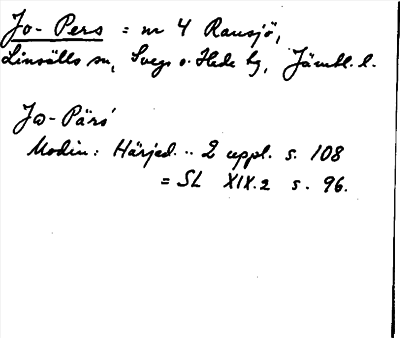 Jo-Pers = nr 4 Ransjö,
Linsälls sn, Svegs o. Hede tg, Jämtl. l.
Jo-Pärs'
Modin: Härjed... 2 uppl. s. 108
= SL XIX.2 s. 96.